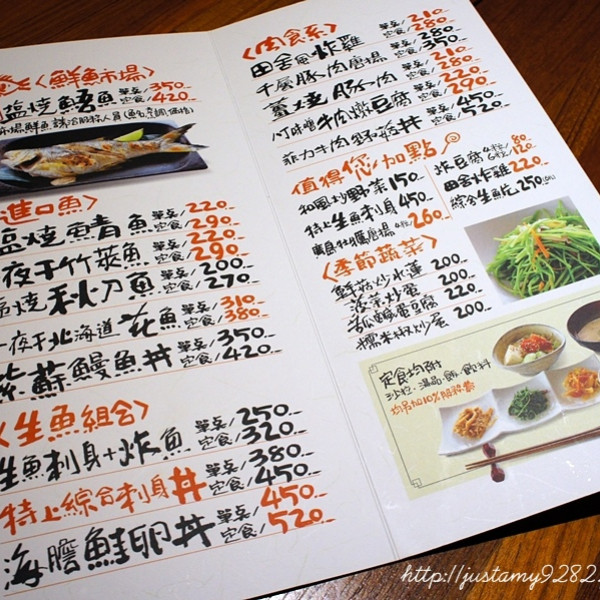 〈鮮魚市場〉
塩燒鱸魚 單点/350.-
定食/420.-
〈進口魚〉
塩燒鯖魚 單点/220.-
定食/290.-
一夜干竹莢魚 單点/220.-
定食/290.-
塩燒秋刀魚 單点/200.-
定食/270.-
一夜干北海道花魚 單点/310.-
定食/380.-
紫蘇鰻魚丼 單点/350.-
定食/420.-
〈生魚組合〉
生魚刺身+炸魚 單点/250.-
定食/320.-
特上綜合刺身丼 單点/380.-
定食/450.-
海膽鮭卵丼 單点/450.-
定食/520.-
〈肉食系〉
田舍風炸雞 單点/210.-
定食/280.-
千層豚肉唐揚 單点/
定食/350.-
薑燒豚肉 單点/210.-
定食/280.-
八丁味噌牛肉燉豆腐 單点/220.-
定食/290.-
菲力牛肉 丼 單点/450.-
定食/520.-
值得您加點
和風炒野菜 150.-
特上生魚刺身 450.-
廣島牡蠣唐揚 260.-
炸豆腐 80
田舍炸雞 220.-
綜合生魚 250
〈季節蔬菜〉
鮮菇炒水蓮 200.-
菠菜炒蛋 200.-
鹹蛋豆腐 220.-
糯米椒炒蛋 200.-
定食均附
沙拉、湯品、飯、飲料
均另加10%服務費
http://justamy9282.